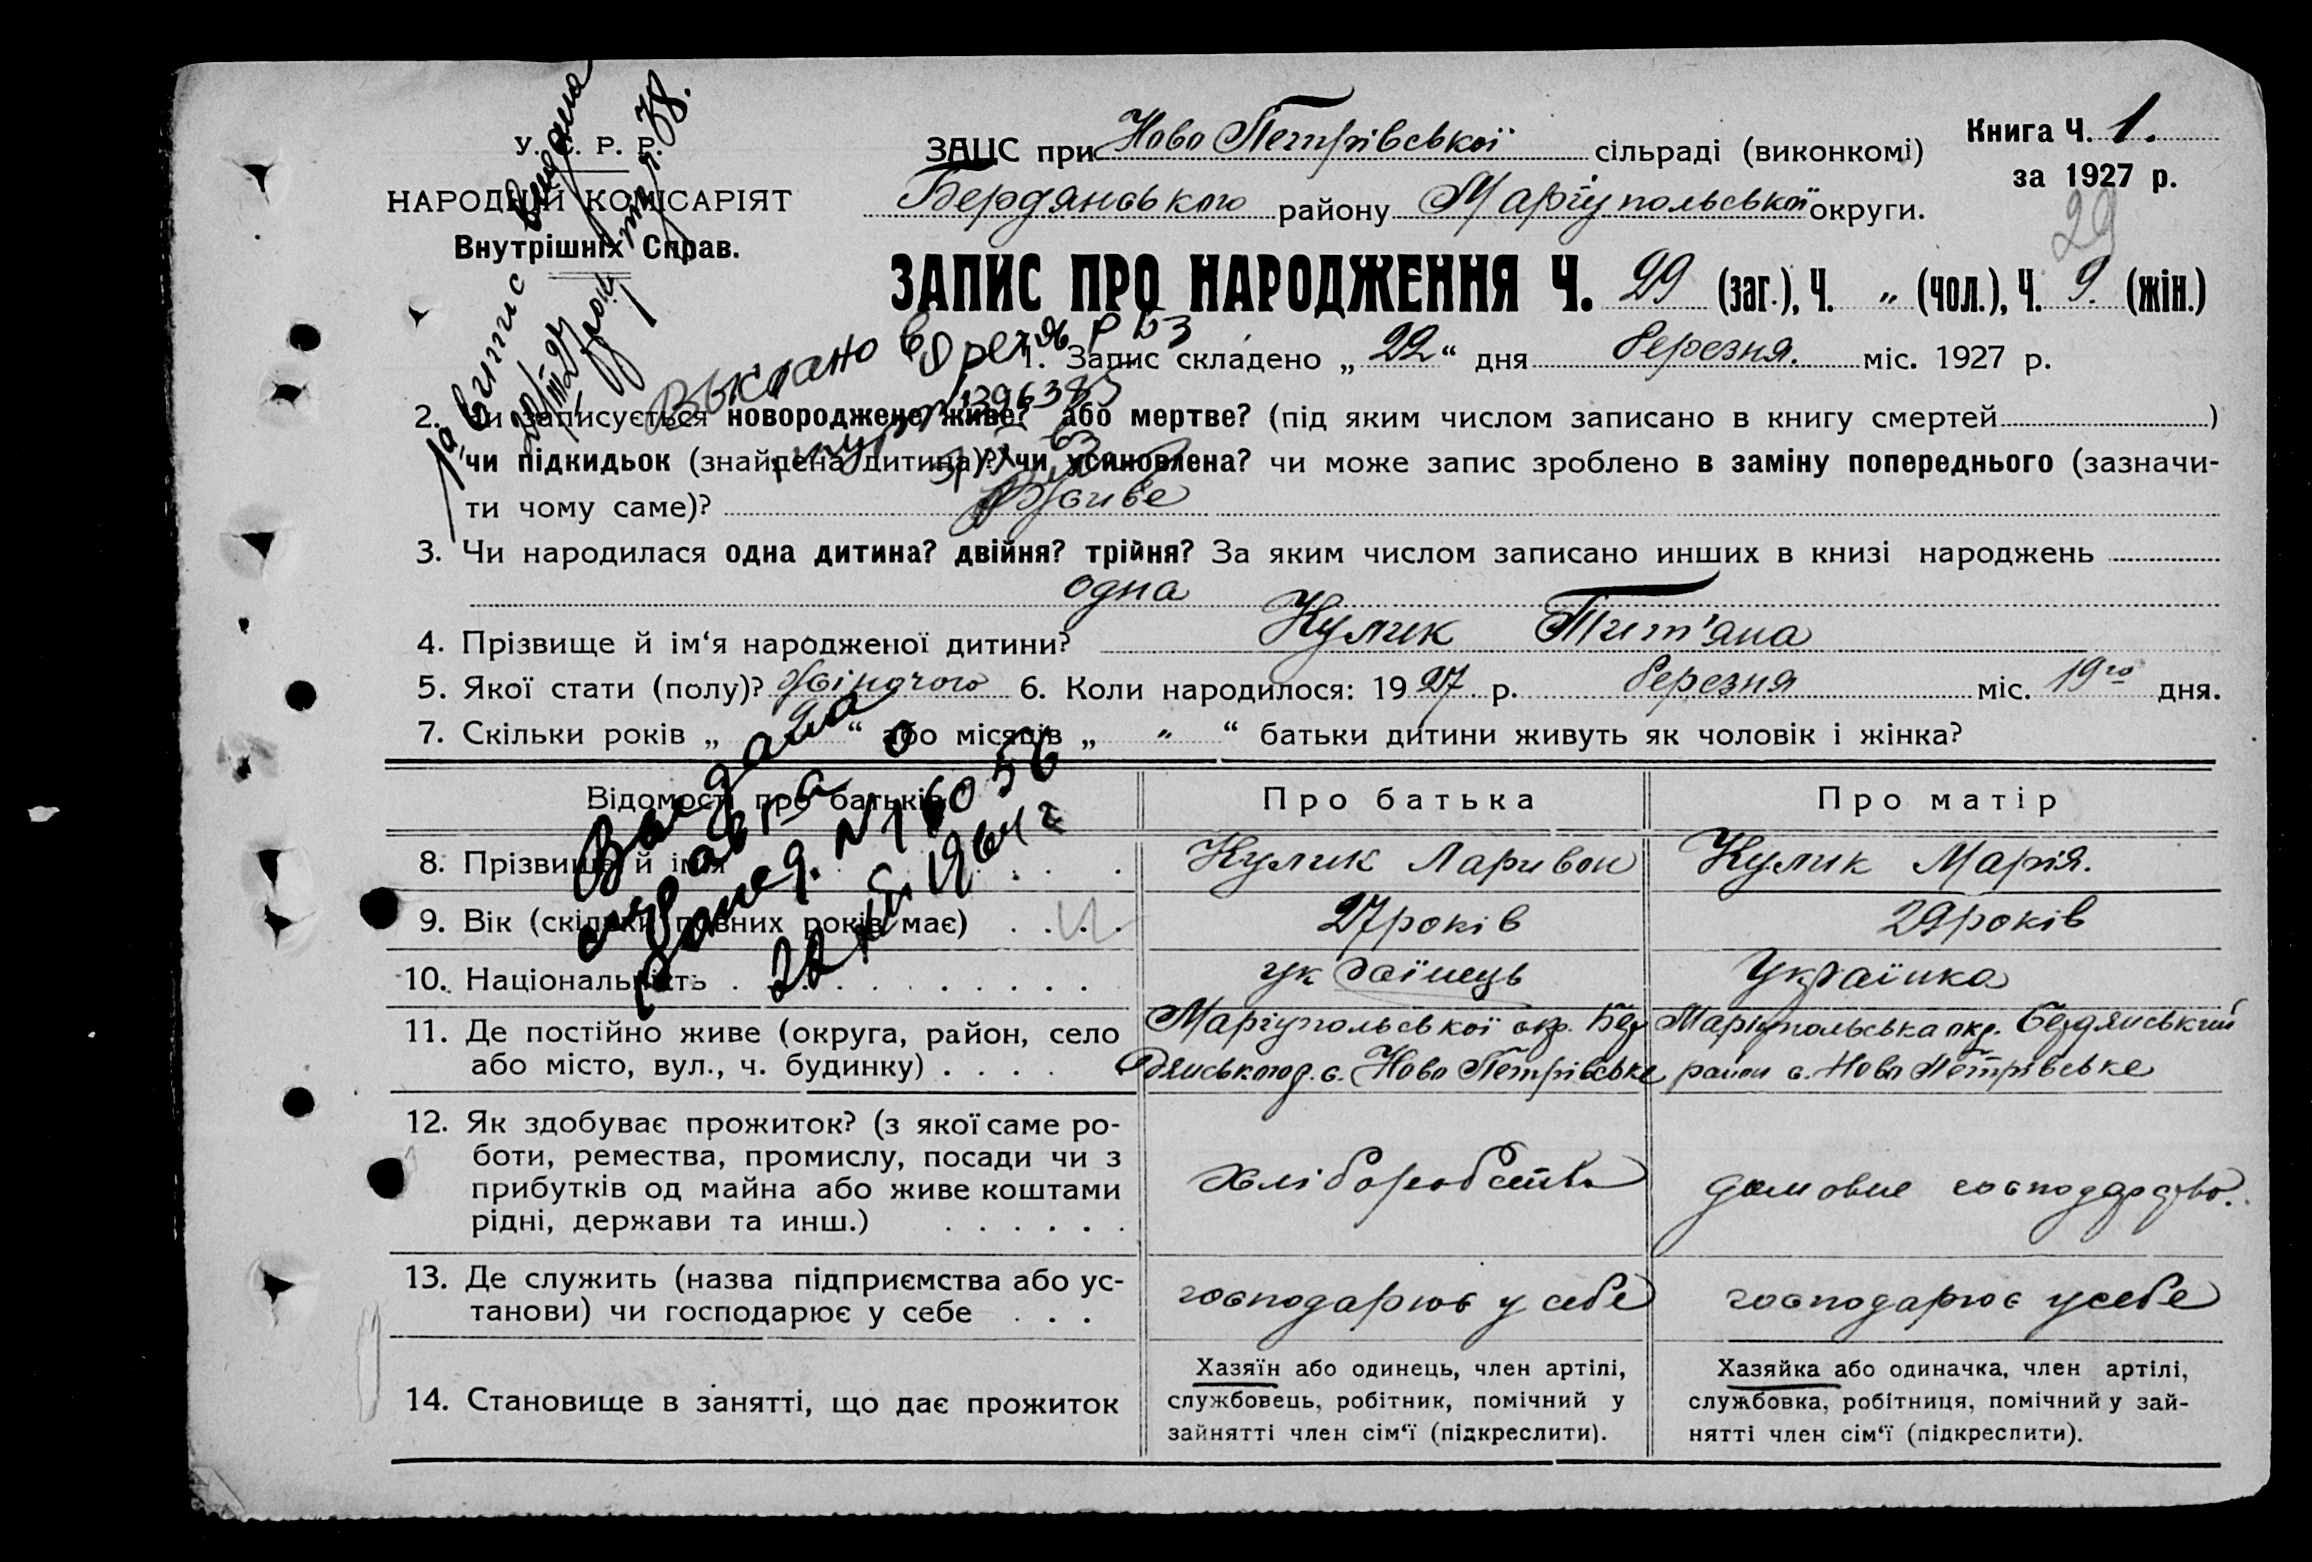 У. С. Р. Р.
НАРОДНІЙ КОМІСАРІЯТ
Внутрішніх Справ.
ЗАЦС при Ново Петрівської сільраді (виконкомі)
Бердянського району Маріупольської округи.
Книга Ч. 1.
за 1927 р.
29
ЗАПИС ПРО НАРОДЖЕННЯ Ч. 29 (заг.), Ч. „ (чол.), Ч. 9. (жін.)
1. Запис складено „ 22 “ дня березня. міс. 1927 р.
2. Чи записується новороджене живе? або мертве? (під яким числом записано в книгу смертей )
чи підкидьок (знайдена дитина)? чи усиновлена? чи може запис зроблено в заміну попереднього (зазначи-
ти чому саме)? Живе
3. Чи народилася одна дитина? двійня? трійня? За яким числом записано инших в книзі народжень
одна
4. Прізвище й ім‘я народженої дитини? Кулик Тит'яна
5. Якої стати (полу)? жіночого 6. Коли народилося: 1927 р. березня міс. 19го дня.
7. Скільки років „ “ або місяців „ „ “ батьки дитини живуть як чоловік і жінка?
Відомості про батьків Про батька Про матір
8. Прізвище й ім‘я Кулик Ларивон Кулик Марія.
9. Вік (скільки повних років має) 27 років 29 років
10. Національність українець Українка
11. Де постійно живе (округа, район, село
або місто, вул., ч. будинку)
Маріупольської окр. Бер
дянського р. с. Ново Петрівське
Маріупольська окр. Бердянський
район с. Ново Петрівське
12. Як здобуває прожиток? (з якої саме ро-
боти, ремества, промислу, посади чи з
прибутків од майна або живе коштами
рідні, держави та инш.)
хліборобство
домовне господарство.
13. Де служить (назва підприємства або ус-
танови) чи господарює у себе
господарює у себе
господарює у себе
14. Становище в занятті, що дає прожиток
Хазяїн або одинець, член артілі,
службовець, робітник, помічний у
зайнятті член сім‘ї (підкреслити).
Хазяйка або одиначка, член артілі,
службовка, робітниця, помічний у зай-
нятті член сім‘ї (підкреслити).
витис видана
Выдана
справка о
22 XII 1964 г